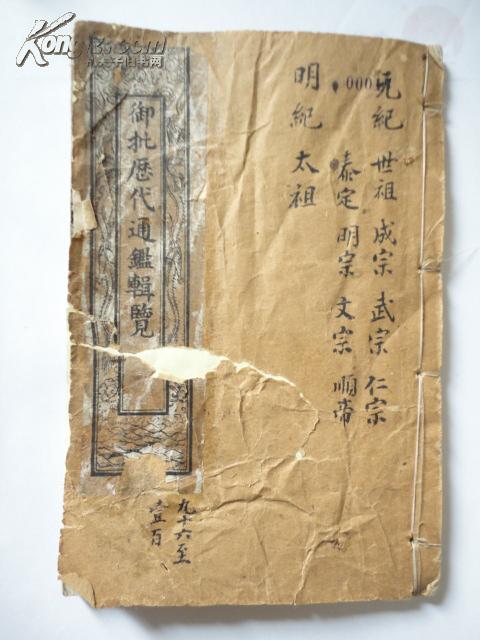 元紀 世祖 成宗 武宗 仁宗
泰定 明宗 文宗 順帝
明紀 太祖
000
御批歷代通鑑輯覽
九十六至
壹百